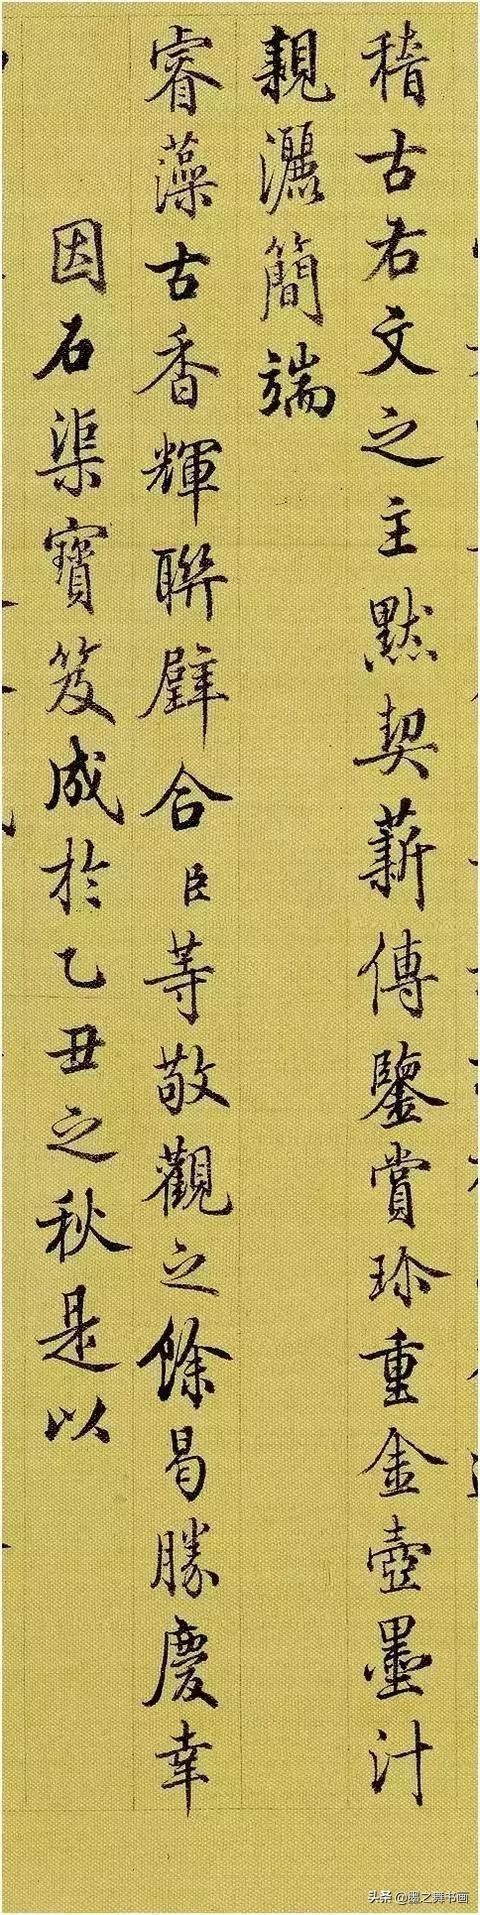 稽古右文之主默契薪傳鑒賞珍重金壺墨汁
親灑簡端
睿藻古香輝聯璧合臣等敬觀之餘曷勝慶幸
因石渠寶笈成於乙丑之秋是以
头条 @墨之舞书画